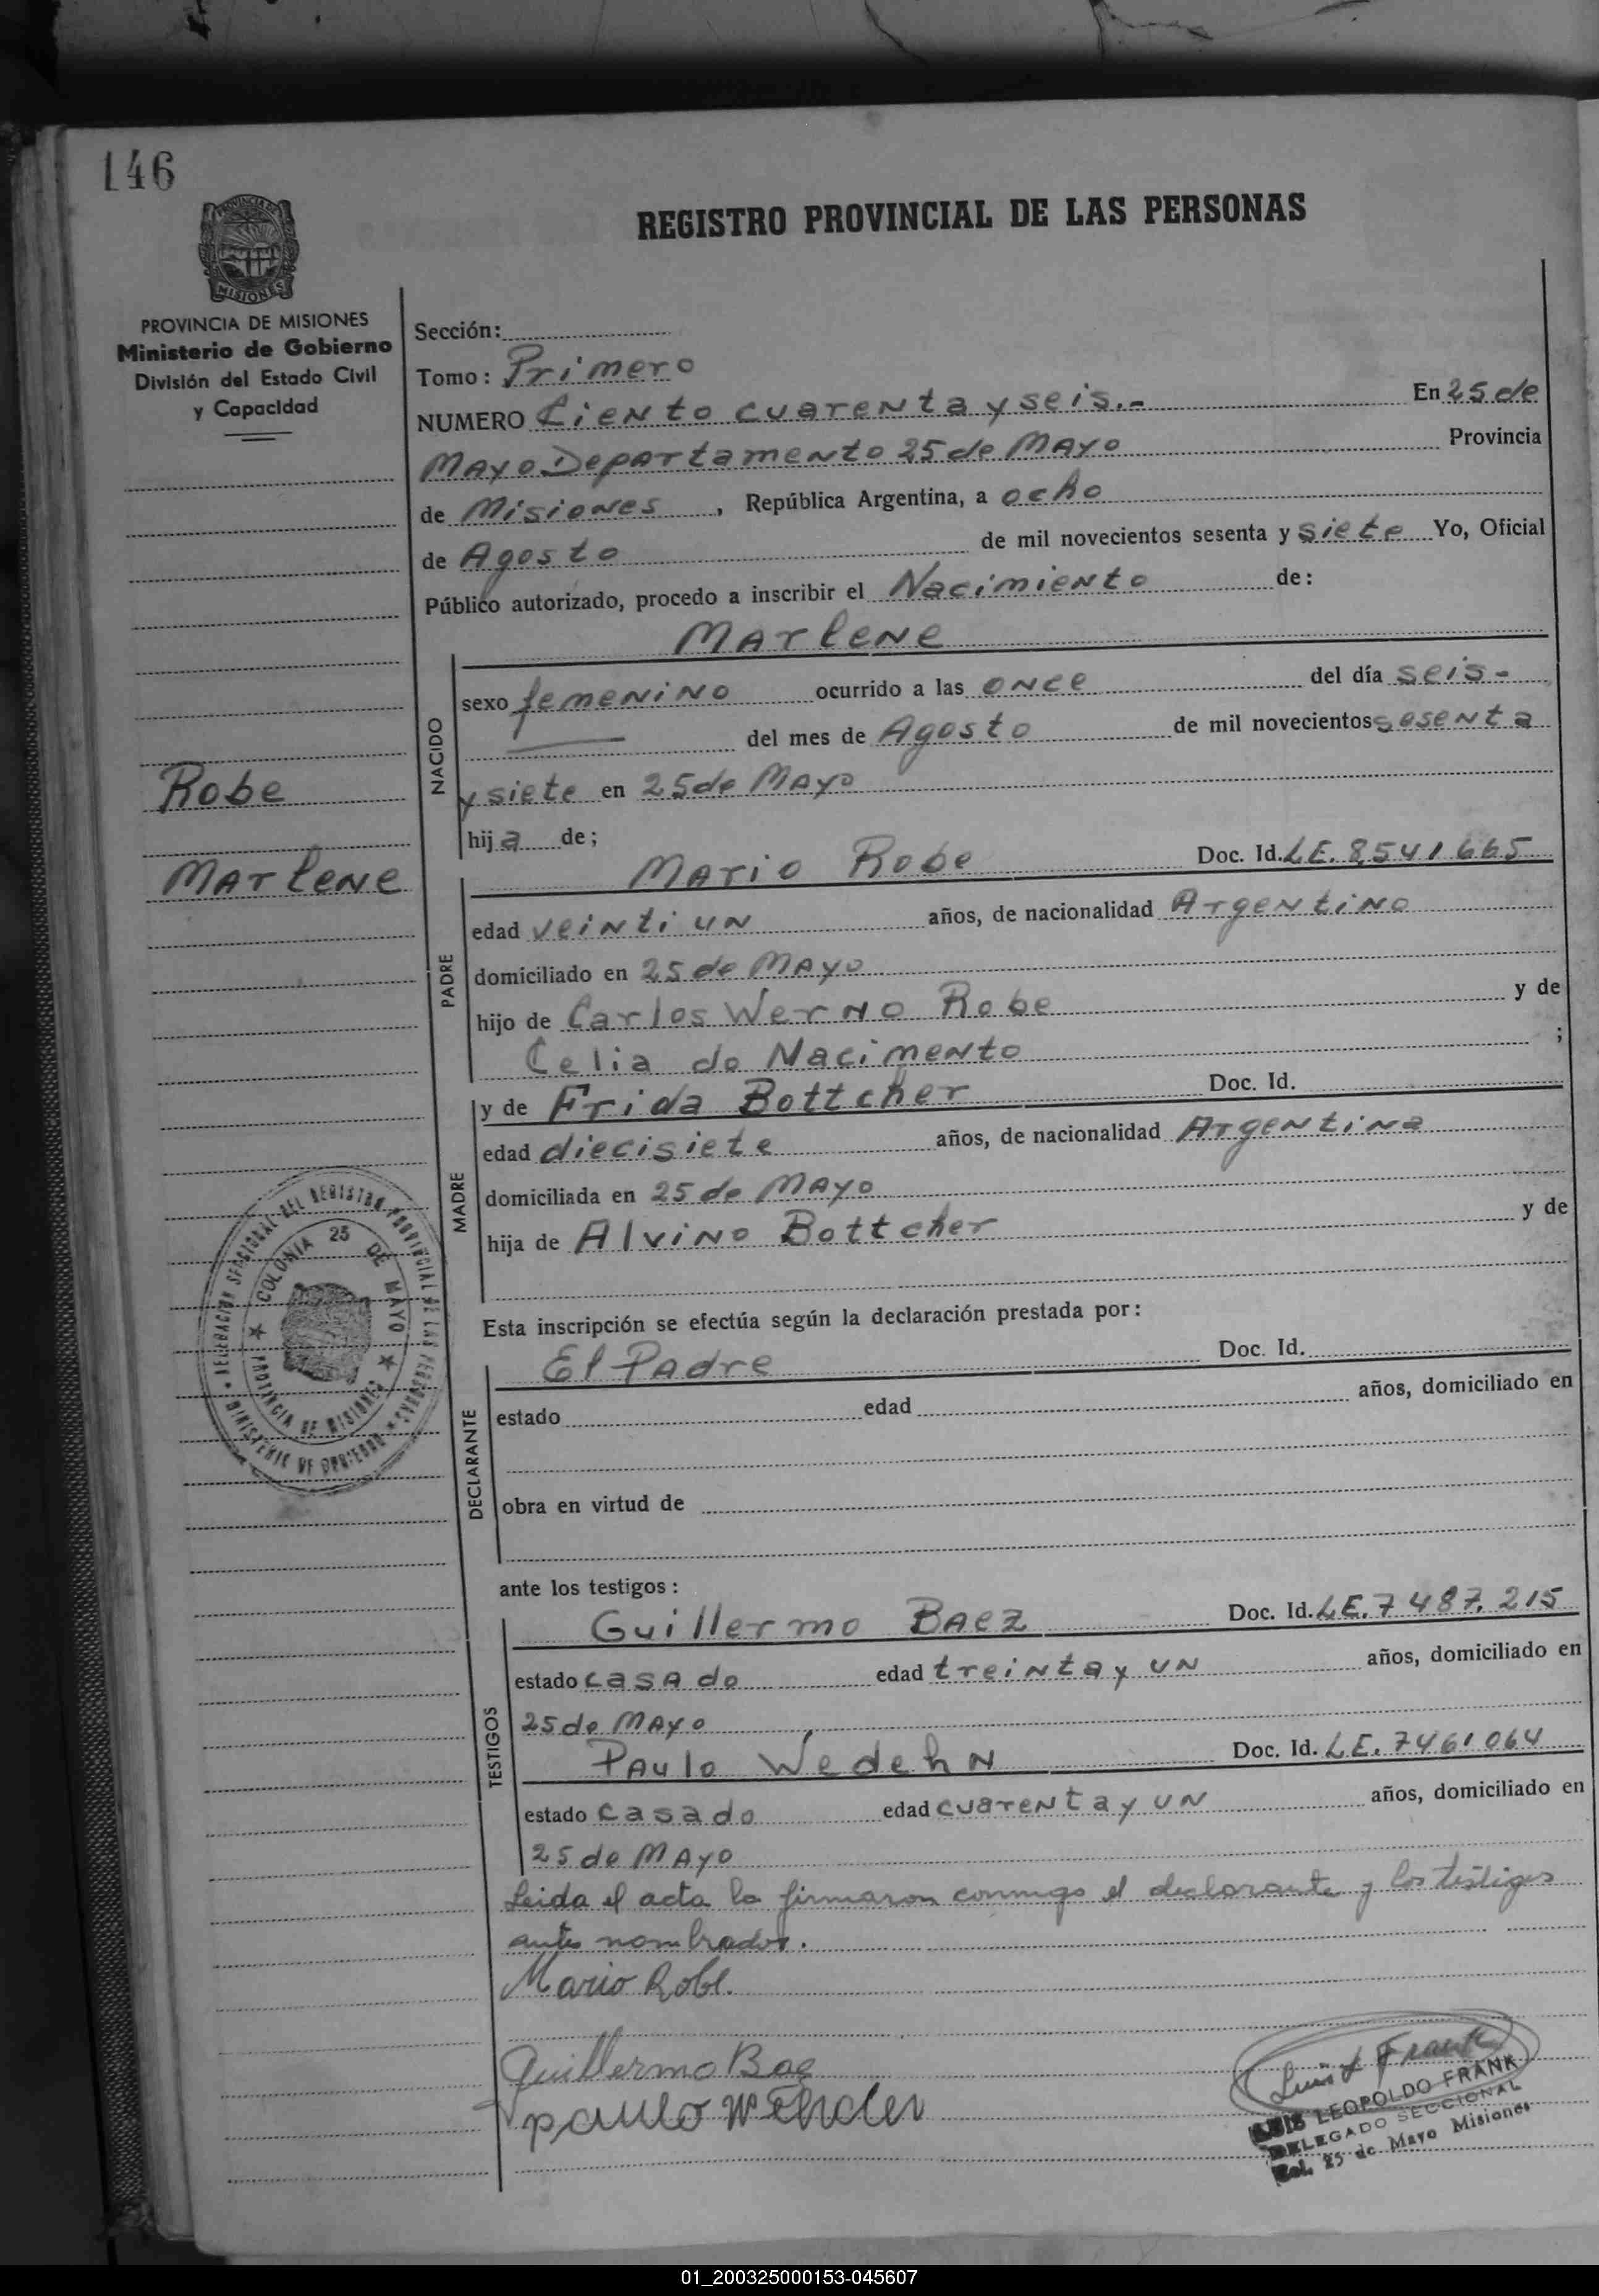 146
REGISTRO PROVINCIAL DE LAS PERSONAS
PROVINCIA DE MISIONES
Ministerio de Gobierno
División del Estado Civil
y Capacidad
Sección:
Tomo: Primero
NUMERO Ciento cuarenta y seis.- En 25 de
Mayo Departamento 25 de Mayo Provincia
de Misiones, República Argentina, a ocho
de Agosto de mil novecientos sesenta y siete Yo, Oficial
Público autorizado, procedo a inscribir el Nacimiento de:
Marlene
NACIDO
sexo femenino ocurrido a las once del día seis-
del mes de Agosto de mil novecientos sesenta
y siete en 25 de Mayo
hija de;
Robe
Marlene
PADRE
Mario Robe Doc. Id. L.E. 8,541665
edad veinti un años, de nacionalidad Argentino
domiciliado en 25 de Mayo
hijo de Carlos Werno Robe y de
Celia do Nacimento ;
MADRE
y de Frida Bottcher Doc. Id.
edad diecisiete años, de nacionalidad Argentina
domiciliada en 25 de Mayo
hija de Alvino Bottcher y de
DELEGACION SECCIONAL DEL REGISTRO PROVINCIAL DE LAS PERSONAS
MINISTERIO DE GOBIERNO
COLONIA 25 DE MAYO
PROVINCIA DE MISIONES
Esta inscripción se efectúa según la declaración prestada por:
DECLARANTE
El Padre Doc. Id.
estado edad años, domiciliado en
obra en virtud de
ante los testigos:
TESTIGOS
Guillermo Baez Doc. Id. L.E. 7487.215
estado casado edad treinta y un años, domiciliado en
25 de Mayo
Paulo Wedehn Doc. Id. L.E. 7461064
estado casado edad cuarenta y un años, domiciliado en
25 de Mayo
Leida el acta la firmaron conmigo el declarante y los testigos
antes nombrados.
Mario Robe.
Guillermo Bae
paulo Wehden
Luis L Frank
LUIS LEOPOLDO FRANK
DELEGADO SECCIONAL
Col. 25 de Mayo Misiones
01_200325000153-045607